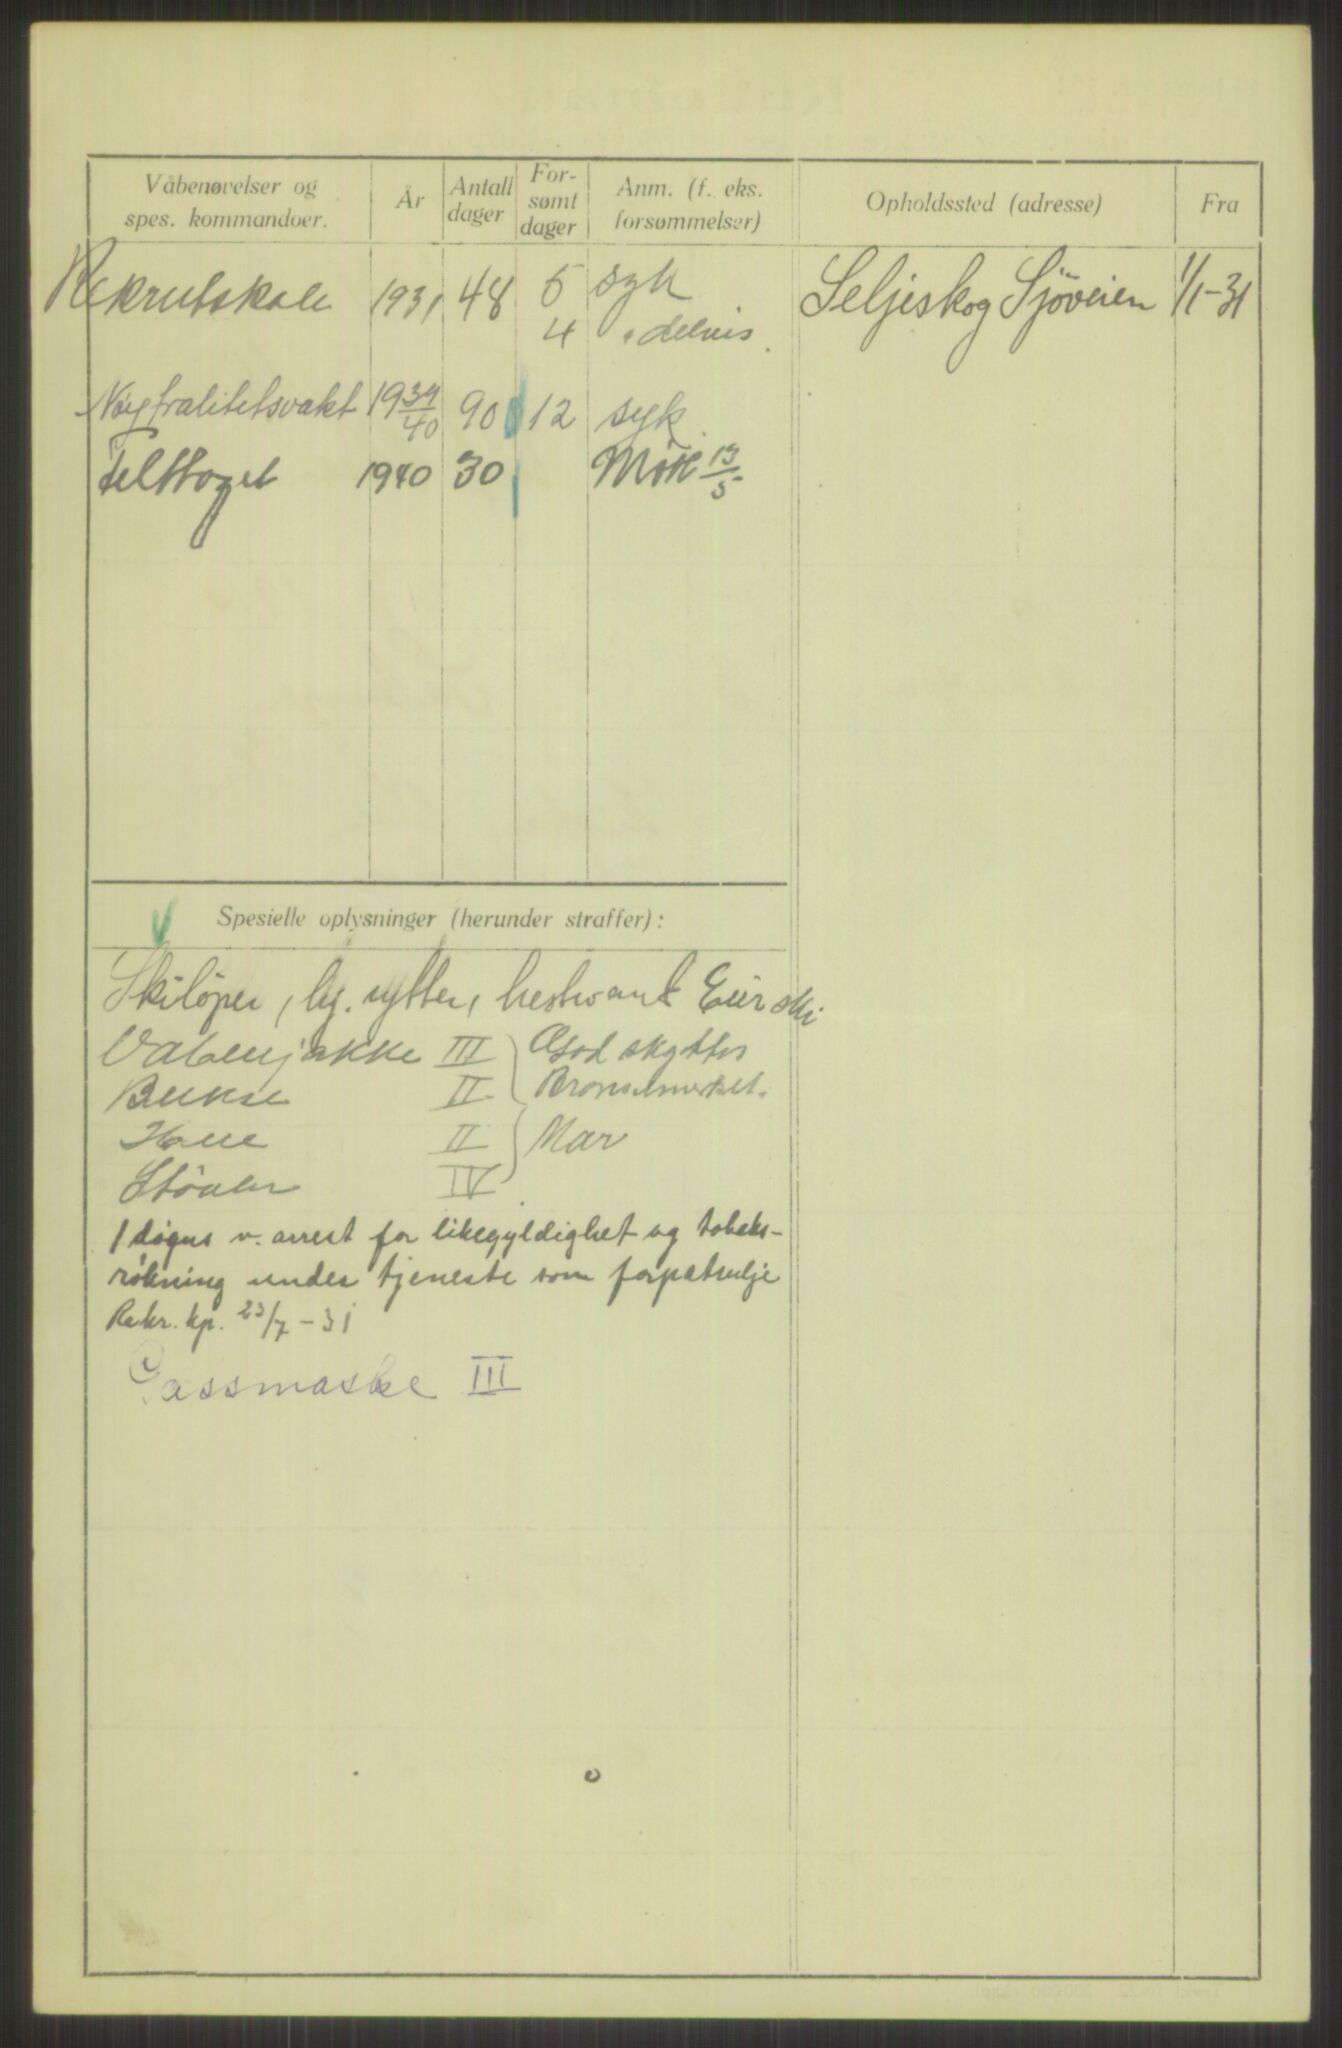 Våbenøvelser og
spes. kommandoer.
År
Antall
dager
For-
sømt
dager
Anm. (f. eks.
forsømmelser)
Opholdssted (adresse)
Fra
Rekrutskole 1931 48 5 syk Seljeskog Sjöveien 1/1-31
4 " delvis.
Nøytralitetsvakt 1939/40 90 12 syk.
Felttoget 1940 30 Møtt 13/5
Spesielle oplysninger (herunder straffer):
Skiløper, rytter, hestevant Eier ski
Våbenjakke III God skytter
Bukse II Bronsemerket.
Hue II Mar
Støvler IV
1 døgns v. arrest for likegyldighet og tobaks-
røkning under tjeneste som forpatrulje
Rekr. kp. 23/7-31
Gassmaske III